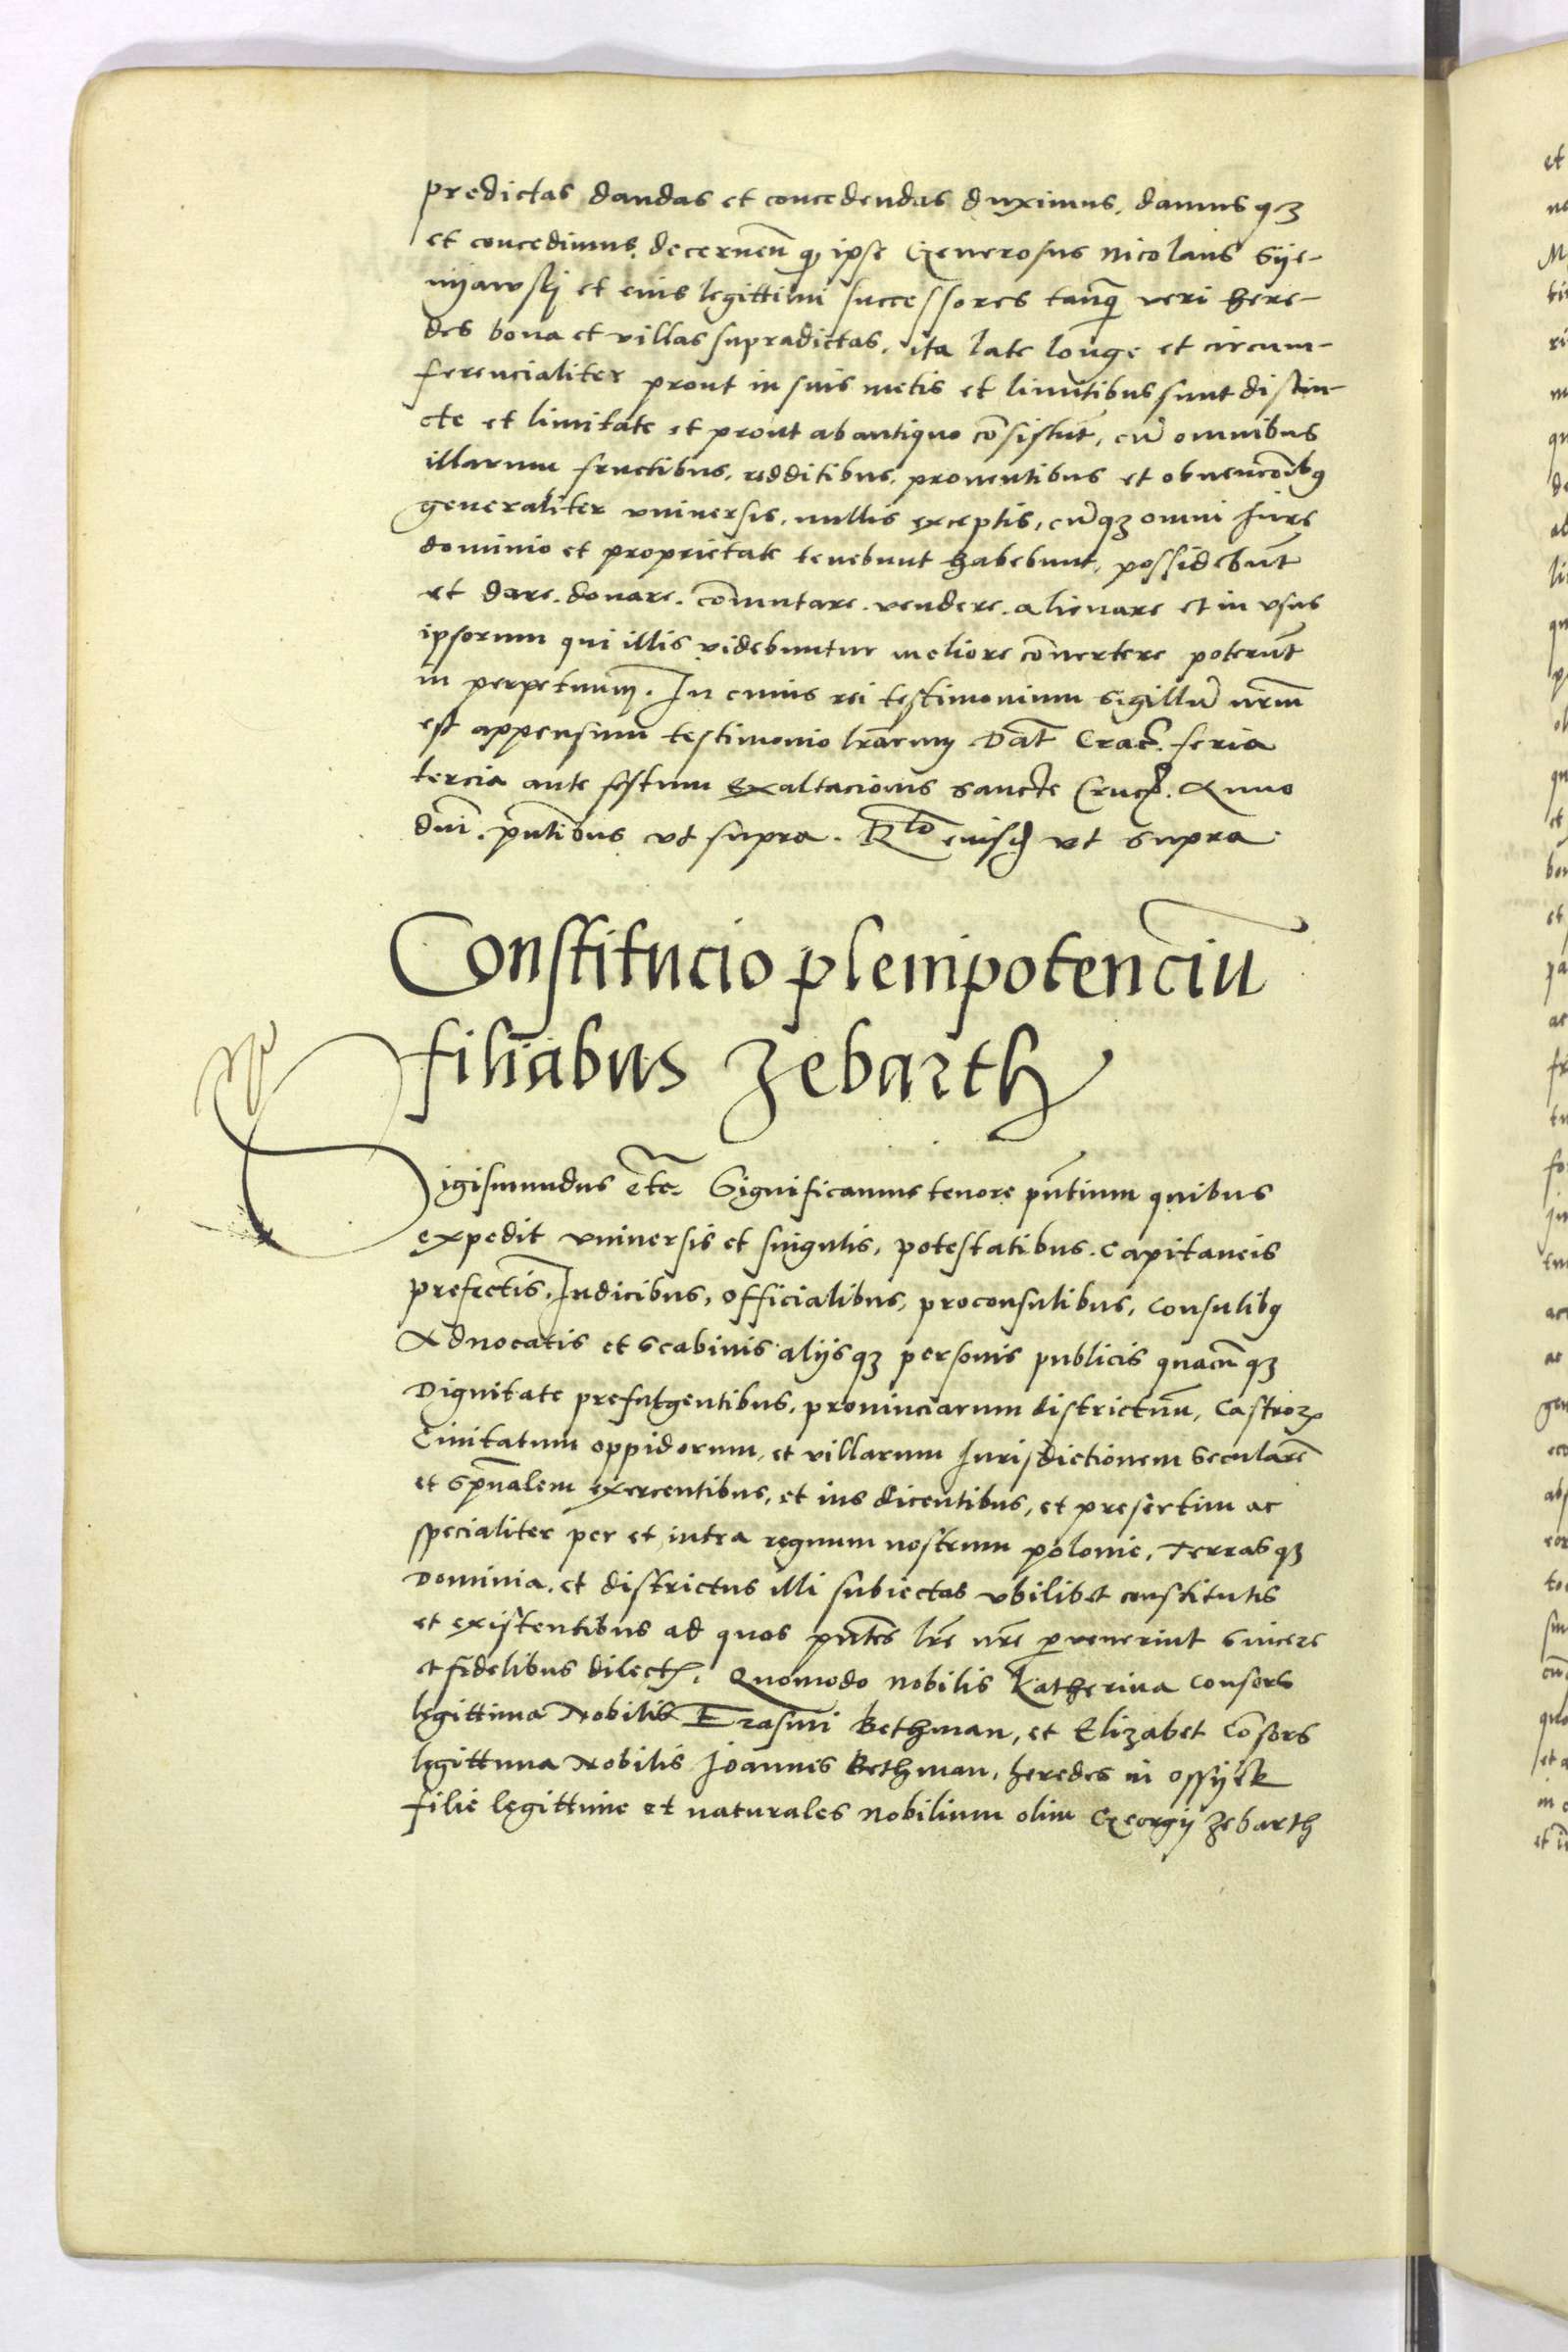 predictas dandas et concedendas duximus, damusqꝫ
et concedimus, decernen̄ qꝫ ipse Generosus Nicolaus Syie-
nyawskj et eius legittimi successores tanq̄ veri here-
des bona et villas supradictas, ita late longe et circum-
ferencialiter prout in suis metis et limitibus sunt distin-
cte et limitate et prout ab antiquo cōsistūt, cū omnibus
illarum fructibus, redditibus, prouentibus et obuencōībꝫ
generaliter vniuersis, nullis exceptis, cūqꝫ omni Jure
dominio et proprietate tenebunt habebunt, possidebūt
et dare. donare. cōmutare. vendere. alienare et in vsus
ipsorum qui illis videbuntur meliore cōuertere poterūt
in perpetuum. In cuius rei testimonium sigillū nrm̄
est appensum testimonio lrārum Dat̄ Crac̄. feria
tercia ante festum Exaltacionis sancte Crucꝭ. Anno
dni. pn̄tibus vt supra. Rlō eiusꝺ vt supra.
Constitucio plenipotenciū
filiabus Zebarth
Sigismundus etc̄. Significamus tenore pn̄tium quibus
expedit vniuersis et singulis, potestatibus. Capitaneis
prefectis, Iudicibus, officialibus, proconsulibus, Consulibꝫ
Aduocatis et scabinis alijsqꝫ personis publicis quacūqꝫ
Dignitate prefulgentibus, prouinciarum districtuū, Castroꝝ
Ciuitatum oppidorum, et villarum Jurisdictionem secularē
et spūalem exercentibus, et ius dicentibus, et presertim ac
specialiter per et intra regnum nostrum polonie, Terrasqꝫ
Dominia, et districtus illi subiectas vbilibet constitutis
et existentibus ad quos pn̄tes lrē nrē ꝑuenerint sincere
et fidelibus dilectꝭ. Quomodo nobilis Katherina Consors
legittima Nobilis Erasmi Bethman, et Elizabet Cōsors
legittima Nobilis Joannis Bethman, heredes in Ossyek
filie legittime et naturales Nobilium olim Georgij Zebarth